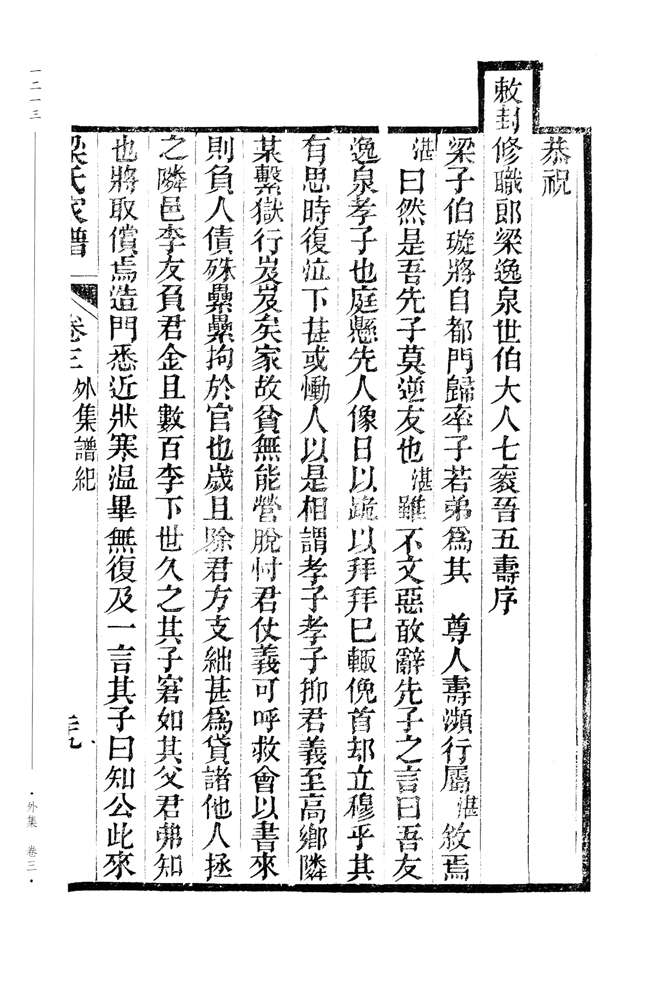 恭祝
敕封修職郎梁逸泉世伯大人七袠晉五壽序
梁子伯璇將自都門歸率子若弟爲其　尊人壽瀕行屬湛敘焉
湛曰然是吾先子莫逆友也湛雖不文惡敢辭先子之言曰吾友
逸泉孝子也庭懸先人像日以跪以拜拜巳輙俛首却立穆乎其
有思時復泣下甚或慟人以是相謂孝子孝子抑君義至高鄉隣
某繫獄行岌岌矣家故貧無能營脫忖君仗義可呼救會以書來
則負人債殊纍纍拘於官也歲且除君方支絀甚爲貸諸他人拯
之隣邑李友負君金且數百李下世久之其子窘如其父君弗知
也將取償焉造門悉近狀寒温畢無復及一言其子曰知公此來
梁氏家譜　卷三　外集譜紀
一二一三
・外集　卷三・